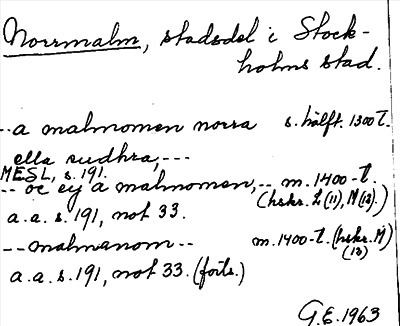 Norrmalm, stadsdel i Stock-
holms stad.
--a malmomen norra s. hälft. 1300 t.
ella sudhra,---
MESL, s. 191.
-- oc ey a malmomen,-- m. 1400-t.
a.a. s. 191, not 33. (hskr. L (11), M (13).)
--malmanom-- m. 1400-t. (hskr. M (13)
a.a. s. 191, not 33. (forts.)
G.E. 1963